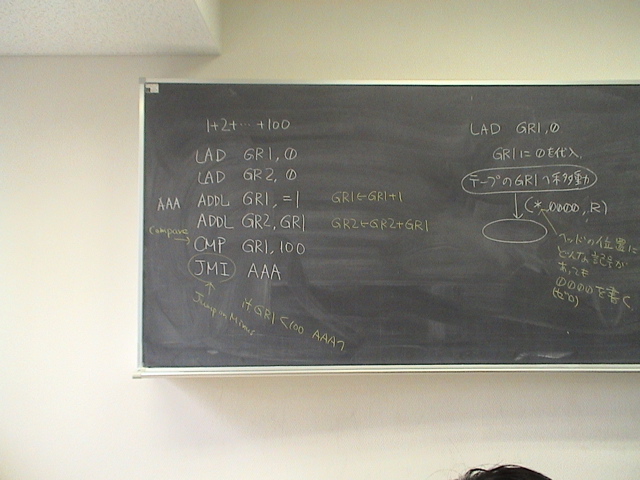 1+2+…+100
LAD GR1,0
LAD GR2,0
AAA ADDL GR1,=1 GR1←GR1+1
ADDL GR2,GR1 GR2←GR2+GR1
Compare → CMP GR1,100
JMI AAA
Jump on Minus
if GR1<100 AAAへ
LAD GR1,0
GR1に0を代入
テープのGR1へ移動
(*,0000,R)
ヘッドの位置に
どんな記号が
あっても
0000を書く
(ゼロ)